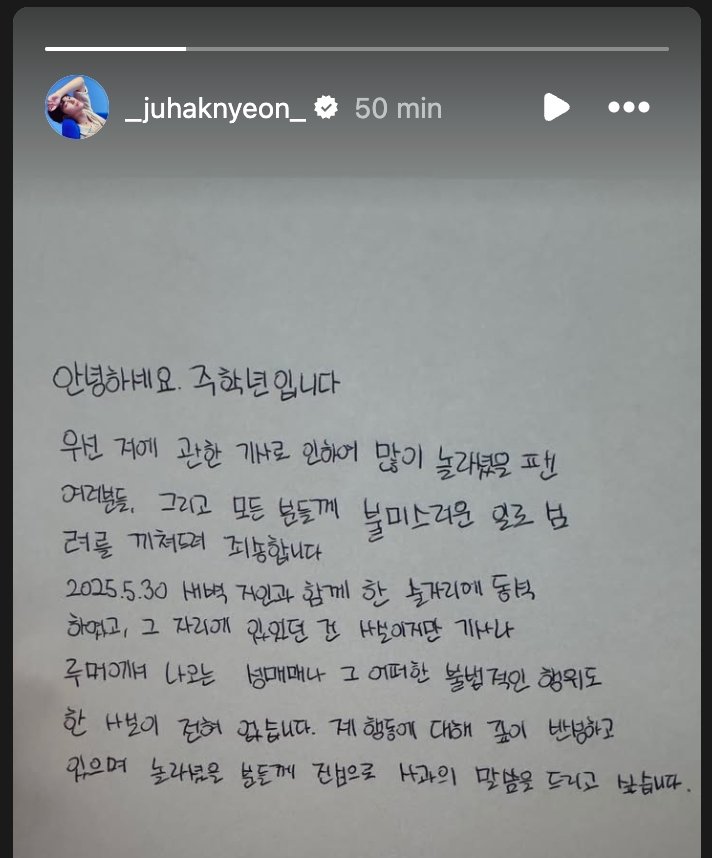 _juhaknyeon_ 50 min
안녕하세요. 주학년입니다
우선 저에 관한 기사로 인하여 많이 놀라셨을 팬
여러분들, 그리고 모든 분들께 불미스러운 일로 심
려를 끼쳐드려 죄송합니다
2025.5.30 새벽 지인과 함께 한 술자리에 동석
하였고, 그 자리에 있었던 건 사실이지만 기사나
루머에서 나오는 성매매나 그 어떠한 불법적인 행위도
한 사실이 전혀 없습니다. 제 행동에 대해 깊이 반성하고
있으며 놀라셨을 분들께 진심으로 사과의 말씀을 드리고 싶습니다.